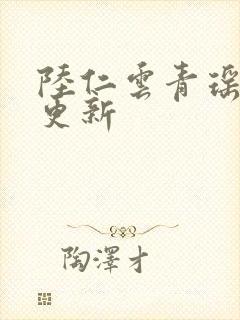 陸仁雲青瑶
更新
陶澤才